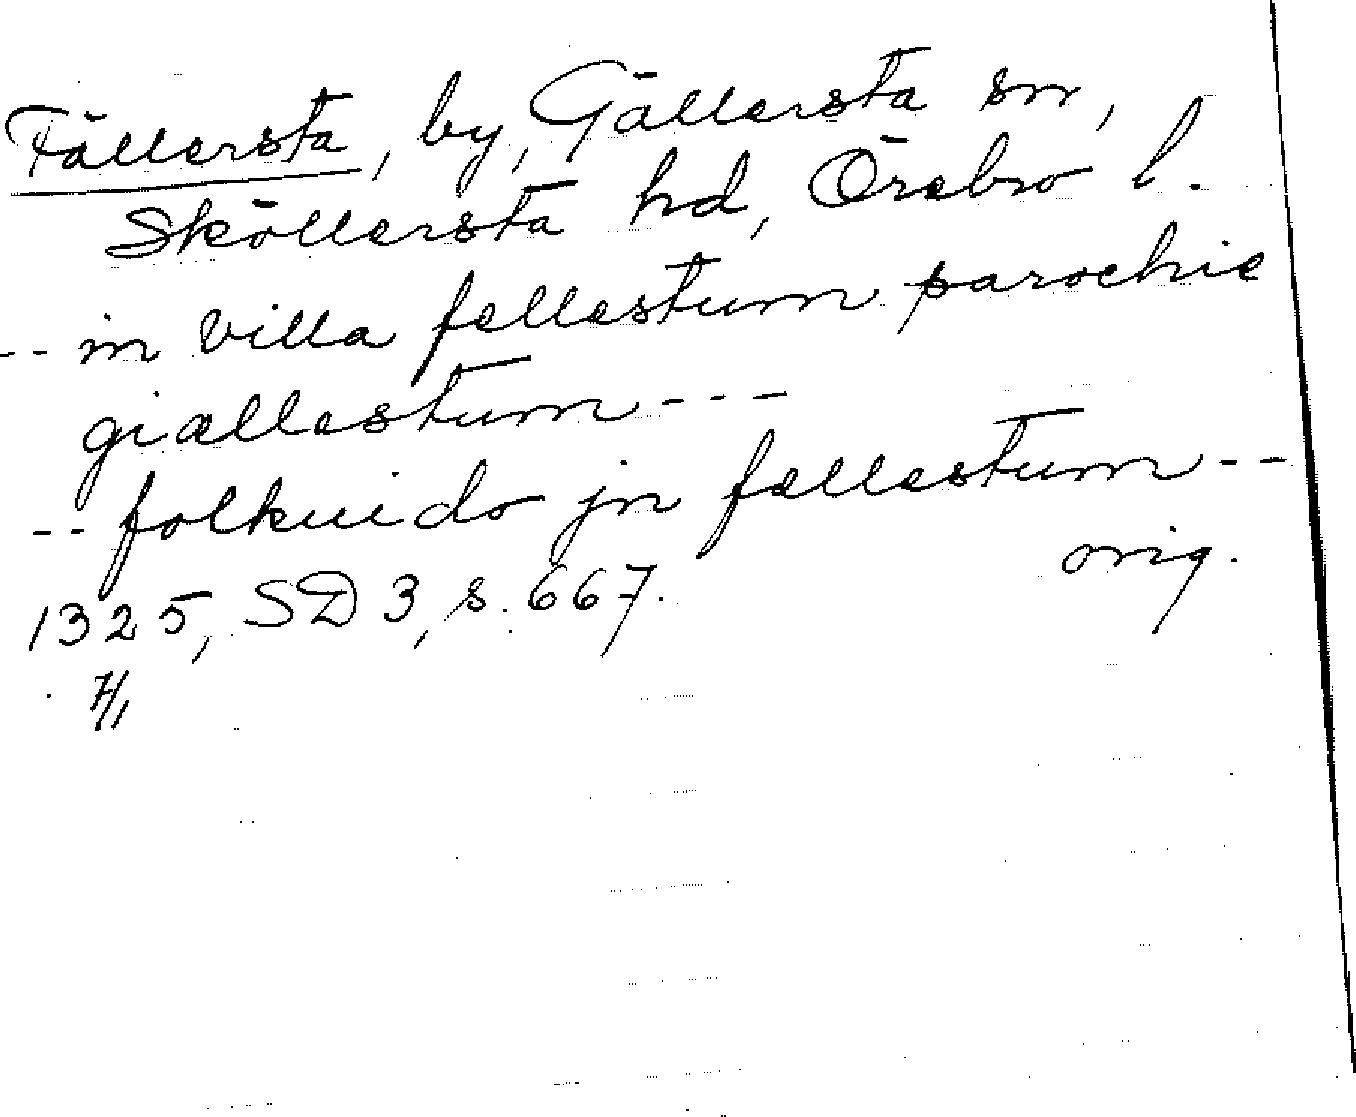 Fällersta, by, Gällersta sn,
Sköllersta hd, Örebro l.
-- in villa fellestum parochie
giællestum ---
-- folkuido jn fællestum --
1325, SD 3, s. 667. orig.
7/1